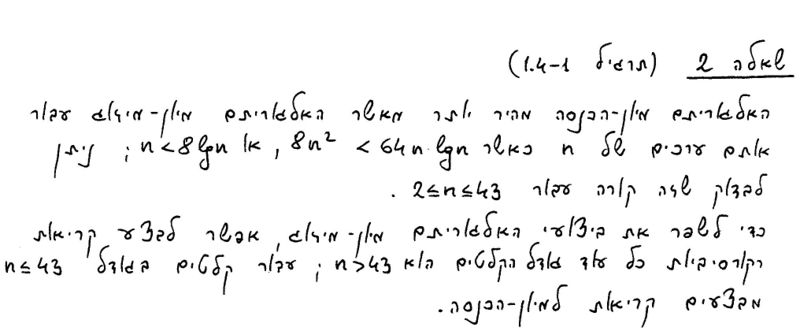 שאלה 2 (תרגיל 1.4-1)
האלגוריתם מיון-הכנסה מהיר יותר מאשר האלגוריתם מיון-מיזוג עבור
אותם ערכים של n כאשר 8n² < 64n lgn, או n<8 lgn ; ניתן
לבדוק שזה קורה עבור 2≤n≤43 .
כדי לשפר את ביצועי האלגוריתם מיון-מיזוג, אפשר לבצע קריאות
רקורסיביות כל עוד גודל הקלטים הוא n>43 ; עבור קלטים בגודל n≤43
מבצעים קריאות למיון-הכנסה.